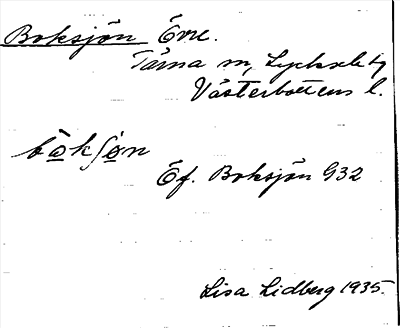 Boksjön Övre.
Tärna sn, Lycksele tg
Västerbottens l.
bo̲kʃo̲n
Öf. Boksjön G32
Lisa Lidberg 1935.